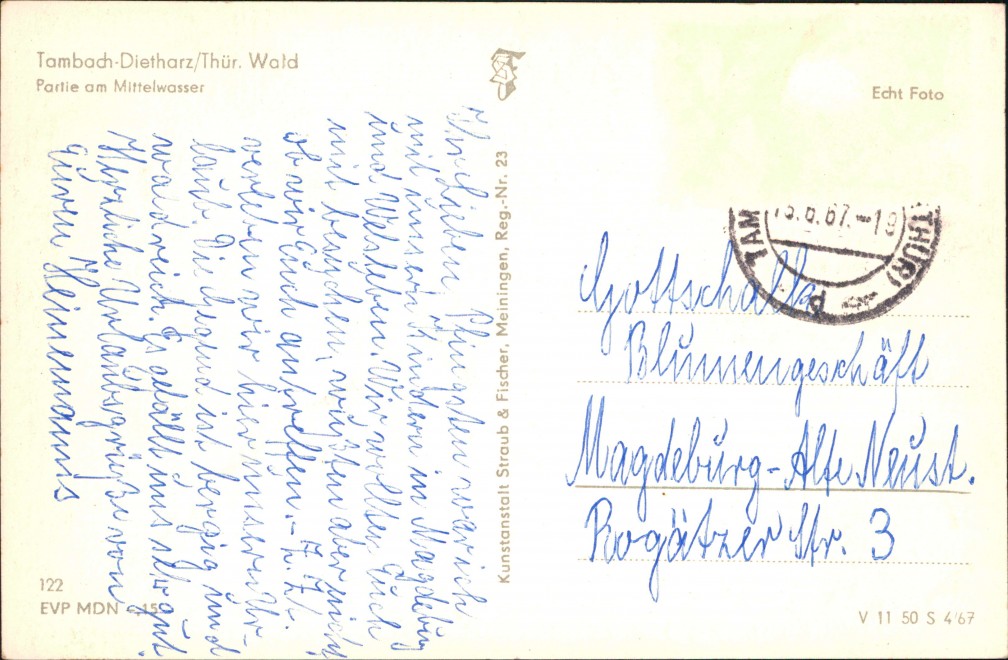 Tambach-Dietharz/Thür. Wald
Partie am Mittelwasser
Ihr Lieben, Pfingsten war ich
mit unsern Kindern in Magdeburg
und Wolsleben. Wir wollten Euch
mit besuchen, wußten aber nicht
ob wir Euch antreffen. - Z. Zt.
verleben wir hier unseren Ur-
laub. Die Gegend ist bergig und
waldreich. Es gefällt uns sehr gut.
Herzliche Urlaubsgrüße von
Euren Heinemanns
122
EVP MDN -,15
Kunstanstalt Straub & Fischer, Meiningen, Reg.-Nr. 23
Echt Foto
TAM
6.67.-19
(THÜR)
Gottschalk
Blumengeschäft
Magdeburg-Alte Neust.
Rogätzer Str. 3
V 11 50 S 4/67